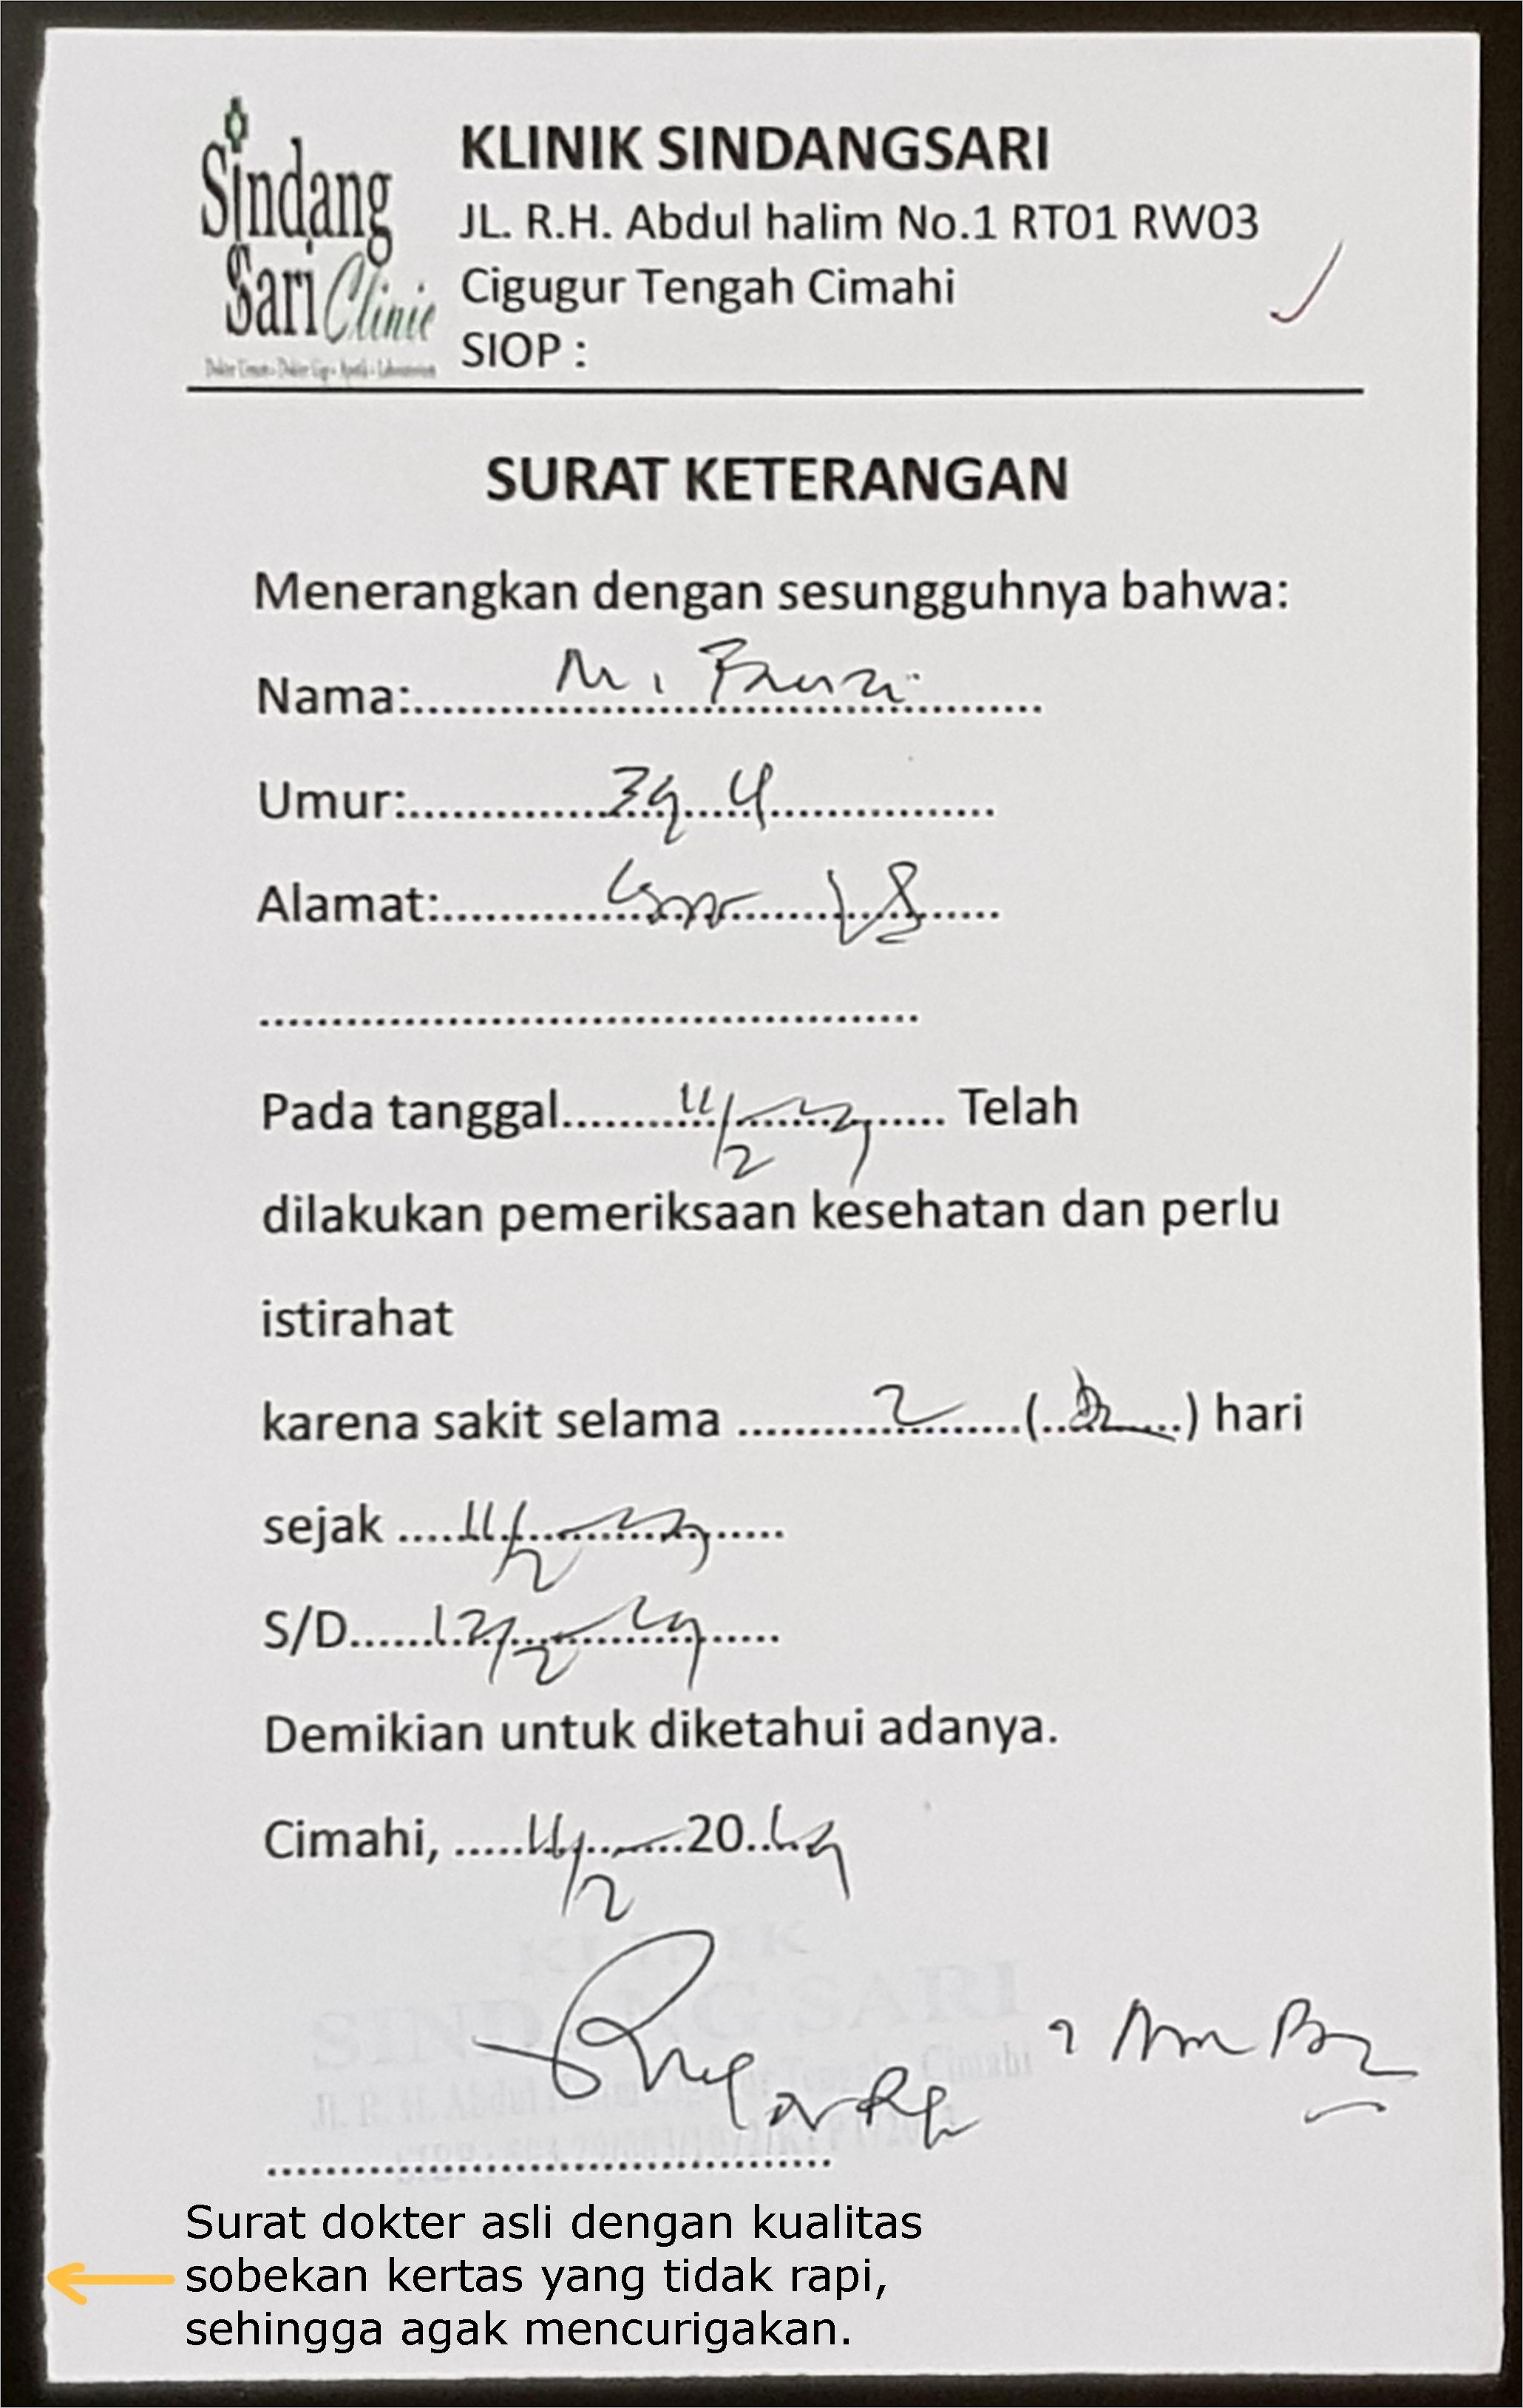 Sindang
Sari Clinic
Dokter Umum - Dokter Gigi - Apotik - Laboratorium
KLINIK SINDANGSARI
JL. R.H. Abdul halim No.1 RT01 RW03
Cigugur Tengah Cimahi
SIOP :
SURAT KETERANGAN
Menerangkan dengan sesungguhnya bahwa:
Nama: M. Fauzi
Umur: 39
Alamat:
Pada tanggal 11/2 Telah
dilakukan pemeriksaan kesehatan dan perlu
istirahat
karena sakit selama 2 ( ) hari
sejak 11/2
S/D 12/2
Demikian untuk diketahui adanya.
Cimahi, 11/2 20 19
KLINIK
SINDANG SARI
Jl. R. H. Abdul Halim Cigugur Tengah Cimahi
Surat dokter asli dengan kualitas
sobekan kertas yang tidak rapi,
sehingga agak mencurigakan.